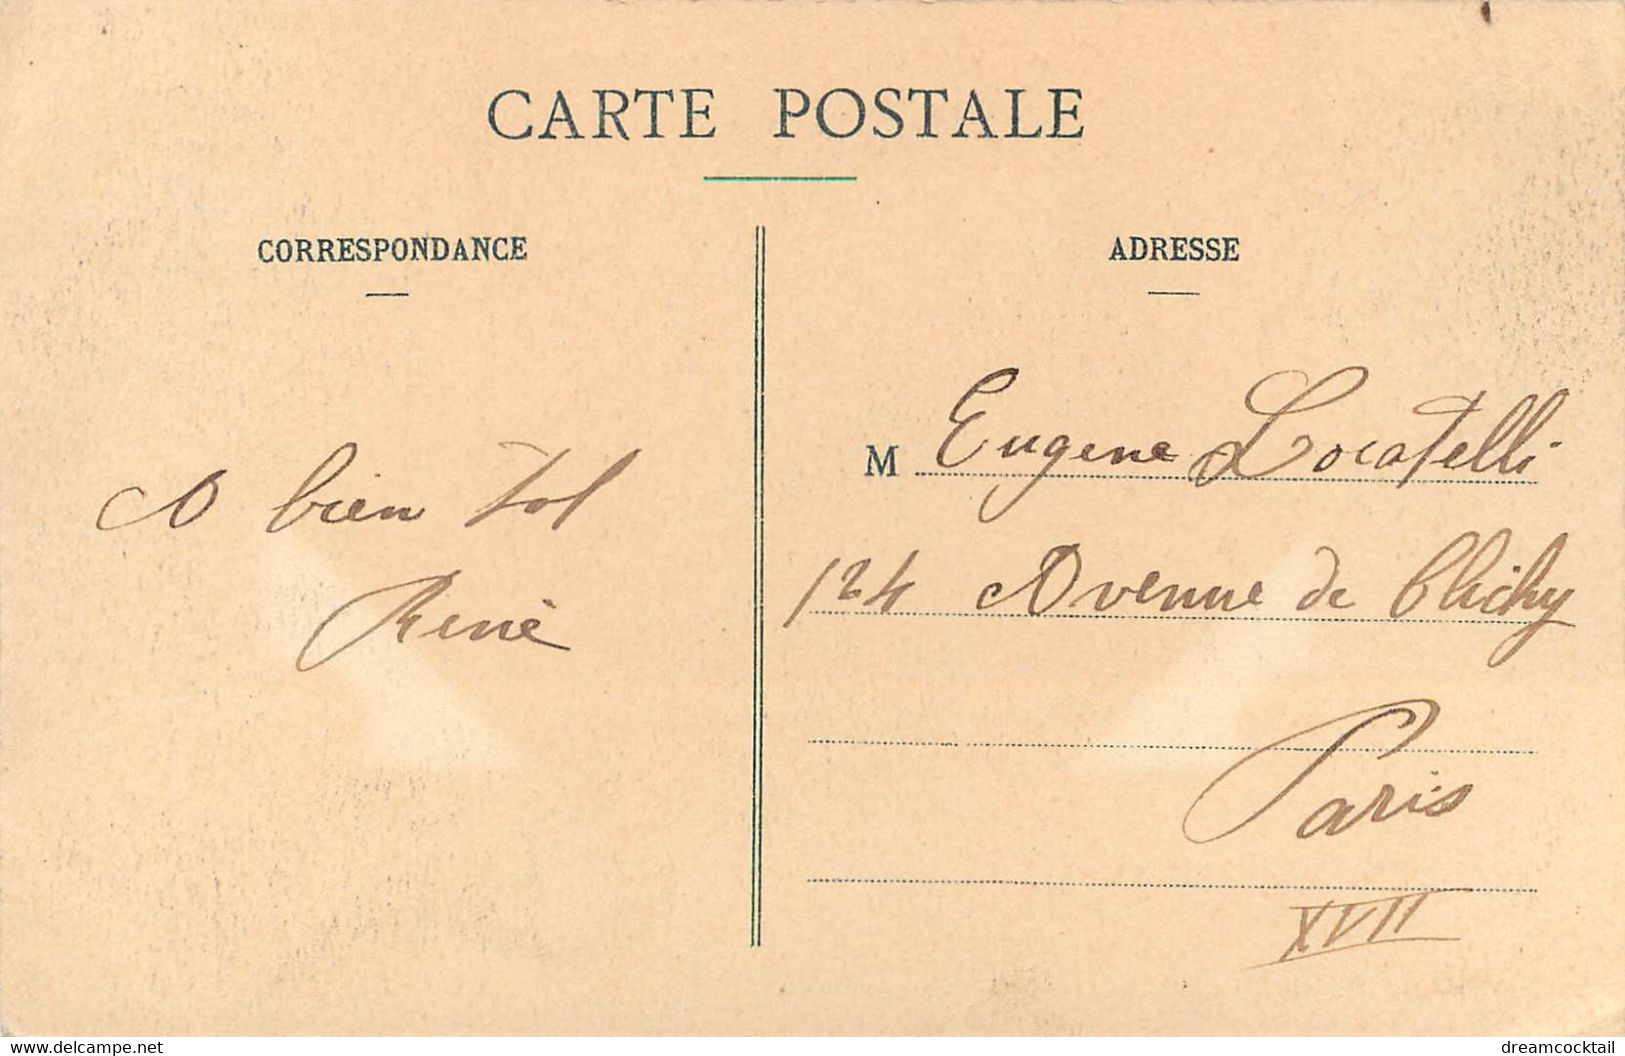 CARTE POSTALE
CORRESPONDANCE
A bien tot
René
ADRESSE
M Eugene Locatelli
124 Avenue de Clichy
Paris
XVII
www.delcampe.net
dreamcocktail